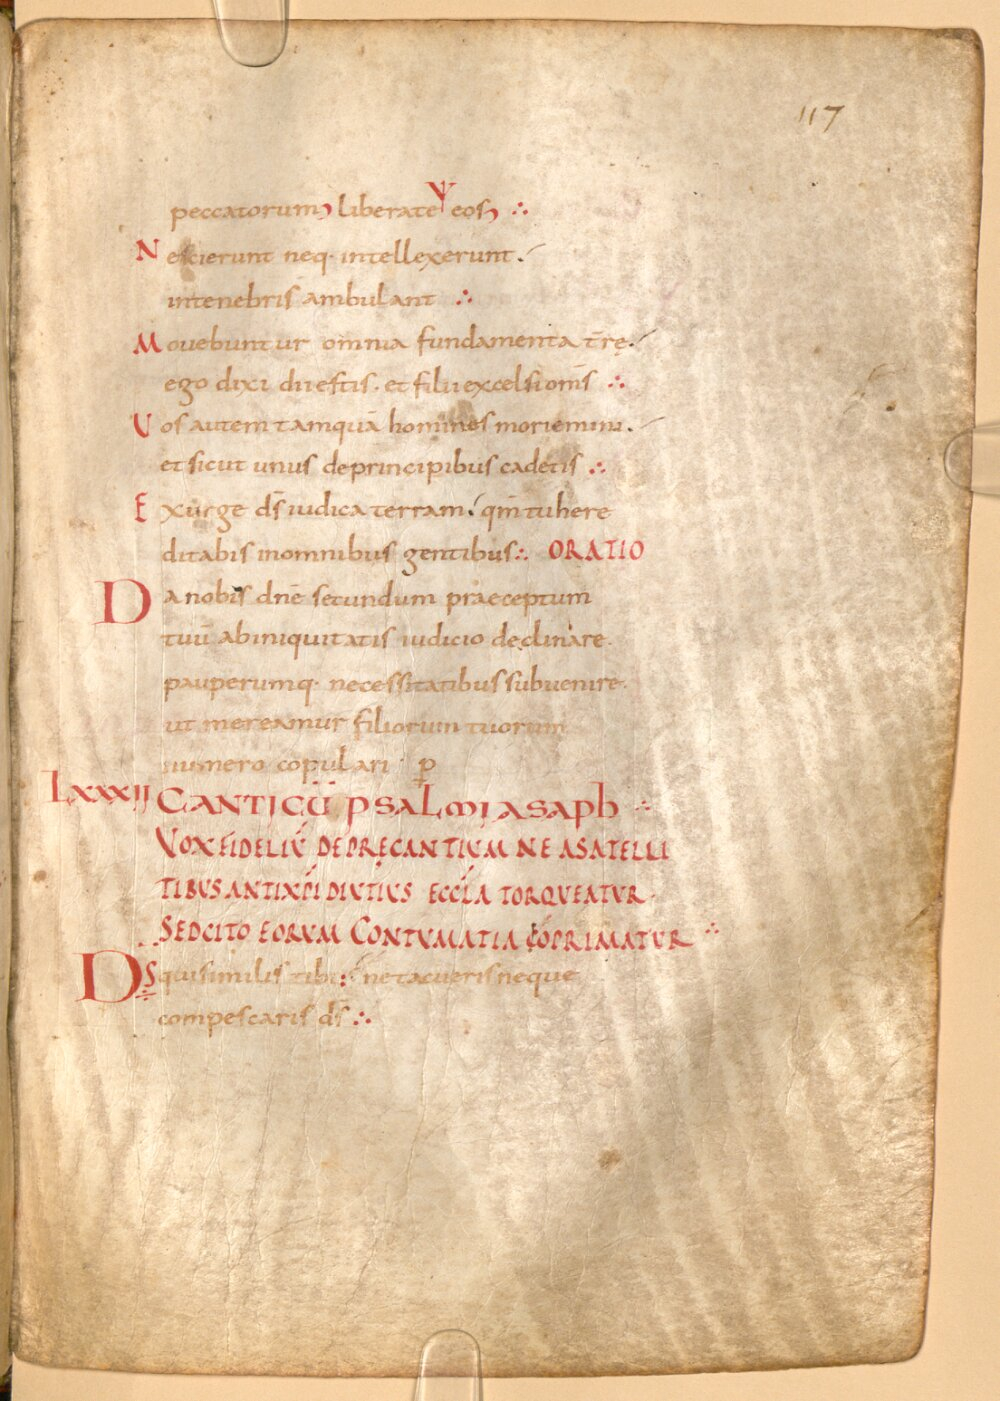 117
peccatorum liberate eos ∴
Nescierunt neq· intellexerunt.
intenebris ambulant ∴
Mouebuntur omnia fundamenta t̄rę.
ego dixi dii estis· et filii excelsi om̄s ∴
Uos autem tamquā homines moriemini.
et sicut unus deprincipibus cadetis ∴
Exurge d̄s iudica terram. qm̄ tu here
ditabis inomnibus gentibus ∴ ORATIO
Da nobis dn̄e secundum praeceptum
tuū abiniquitatis iudicio declinare.
pauperumq· necessitatibus subuenire.
ut mereamur filiorum tuorum
numero copulari· p̱
LXXXII CANTICŪ PSALMI ASAPH ∴
VOX FIDELIV̄ DEPRĘCANTIVM NE ASATELLI
TIBUS ANTIXP̄I DIVTIVS ECCL̄A TORQVEATVR·
SED CITO EORVM CONTVMATIA CŌPRIMATVR ∴
D̄s quis similis tibi: ne tacueris neque
compescaris d̄s ∴